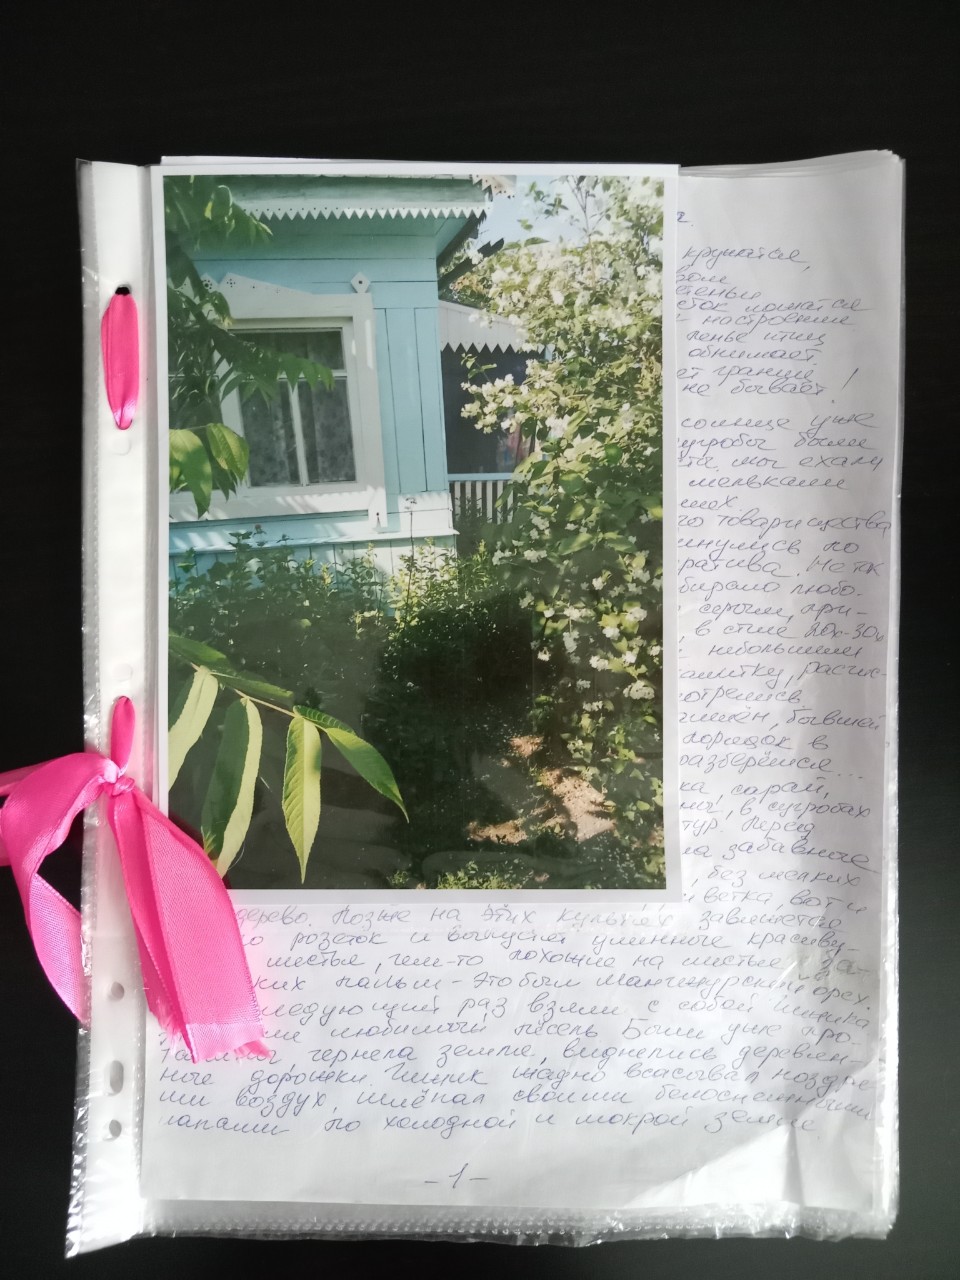 а.
кружатся,
ром
стенья
сток ложатся
настроение
пенье птиц
обнимает
ет границ
не бывает!
солнце уже
сугробы были
мы ехали
мелькали
го товарищества
нулись по
ратива. Не так
бирало любо-
серым, при-
, в стиле 20х-30х
небольшими
калитку, расчис-
отрелись
бывшей
порядок в
разберёмся...
ка, сарай,
ны, в сугробах
тур. Перед
ла забавные
, без мелких
ветка, вот и
дерево. Позже на этих культях завяжется
о розеток и выпустят длинные красиву-
листья, чем-то похожие на листья за-
ких пальм - это был Маньчжурский орех.
ледующий раз взяли с собой
любимый пёсель. Были уже про-
талины, чернела земля, виднелись деревян-
ные дорожки. жадно всасывал ноздря-
ми воздух, шлёпал своими белоснежными
лапами по холодной и мокрой земле.
-1-